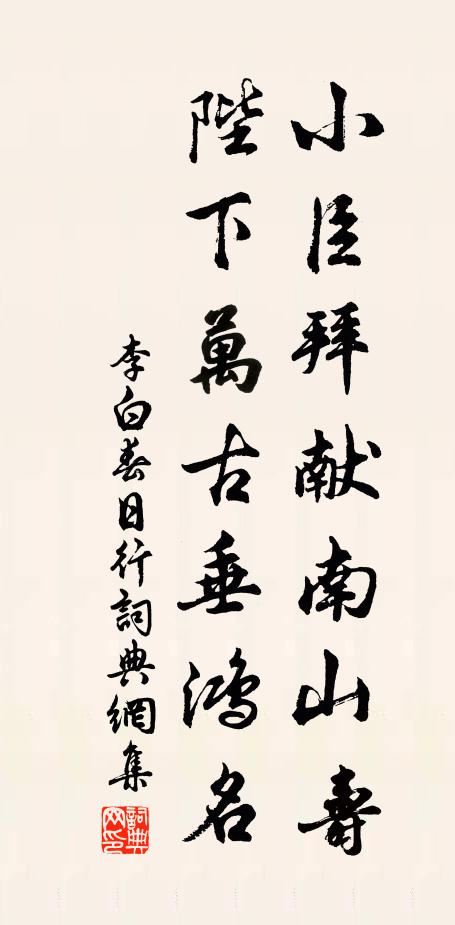 小臣拜献南山壽
陛下萬古垂鴻名
李白春日行詞典網集
詞典網印